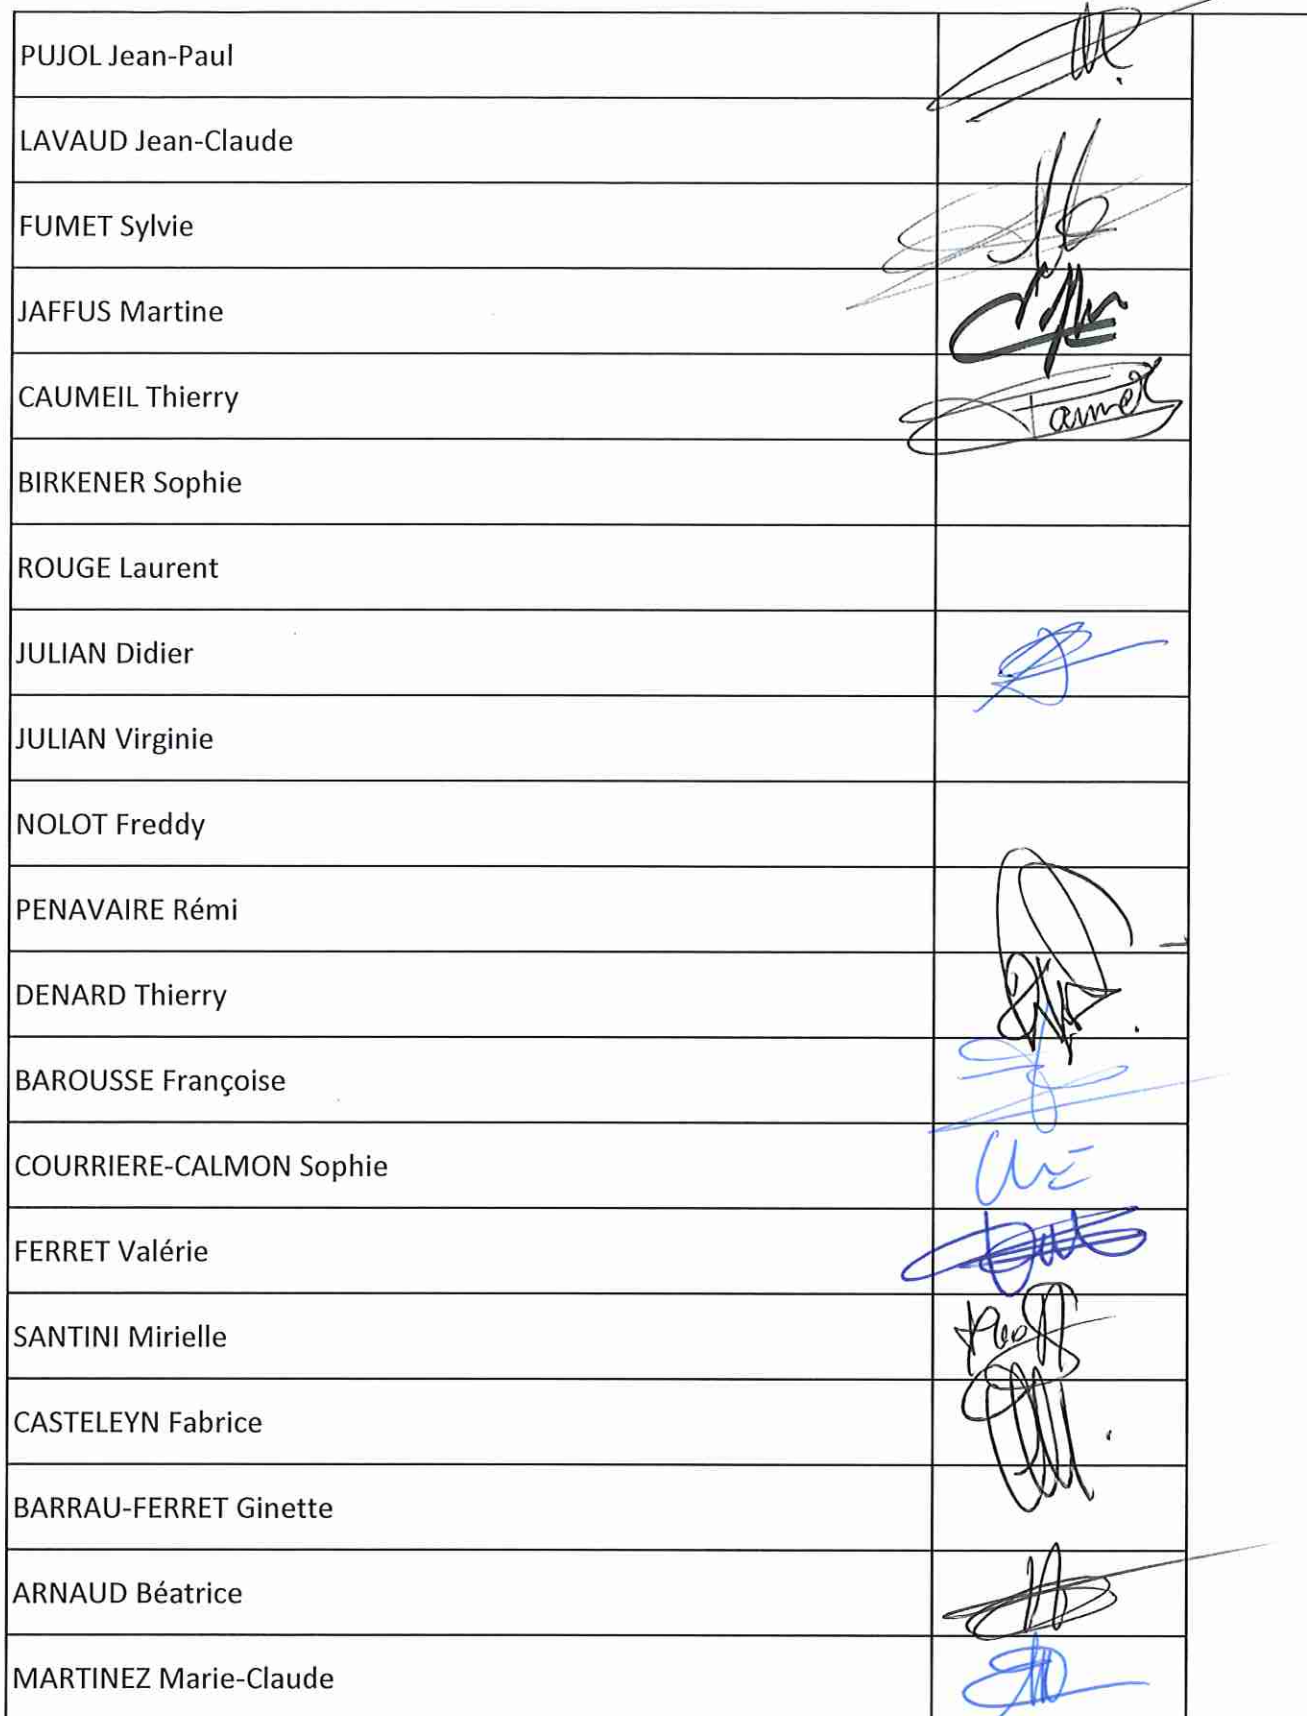 PUJOL Jean-Paul
LAVAUD Jean-Claude
FUMET Sylvie
JAFFUS Martine
CAUMEIL Thierry
BIRKENER Sophie
ROUGE Laurent
JULIAN Didier
JULIAN Virginie
NOLOT Freddy
PENAVAIRE Rémi
DENARD Thierry
BAROUSSE Françoise
COURRIERE-CALMON Sophie
FERRET Valérie
SANTINI Mirielle
CASTELEYN Fabrice
BARRAU-FERRET Ginette
ARNAUD Béatrice
MARTINEZ Marie-Claude